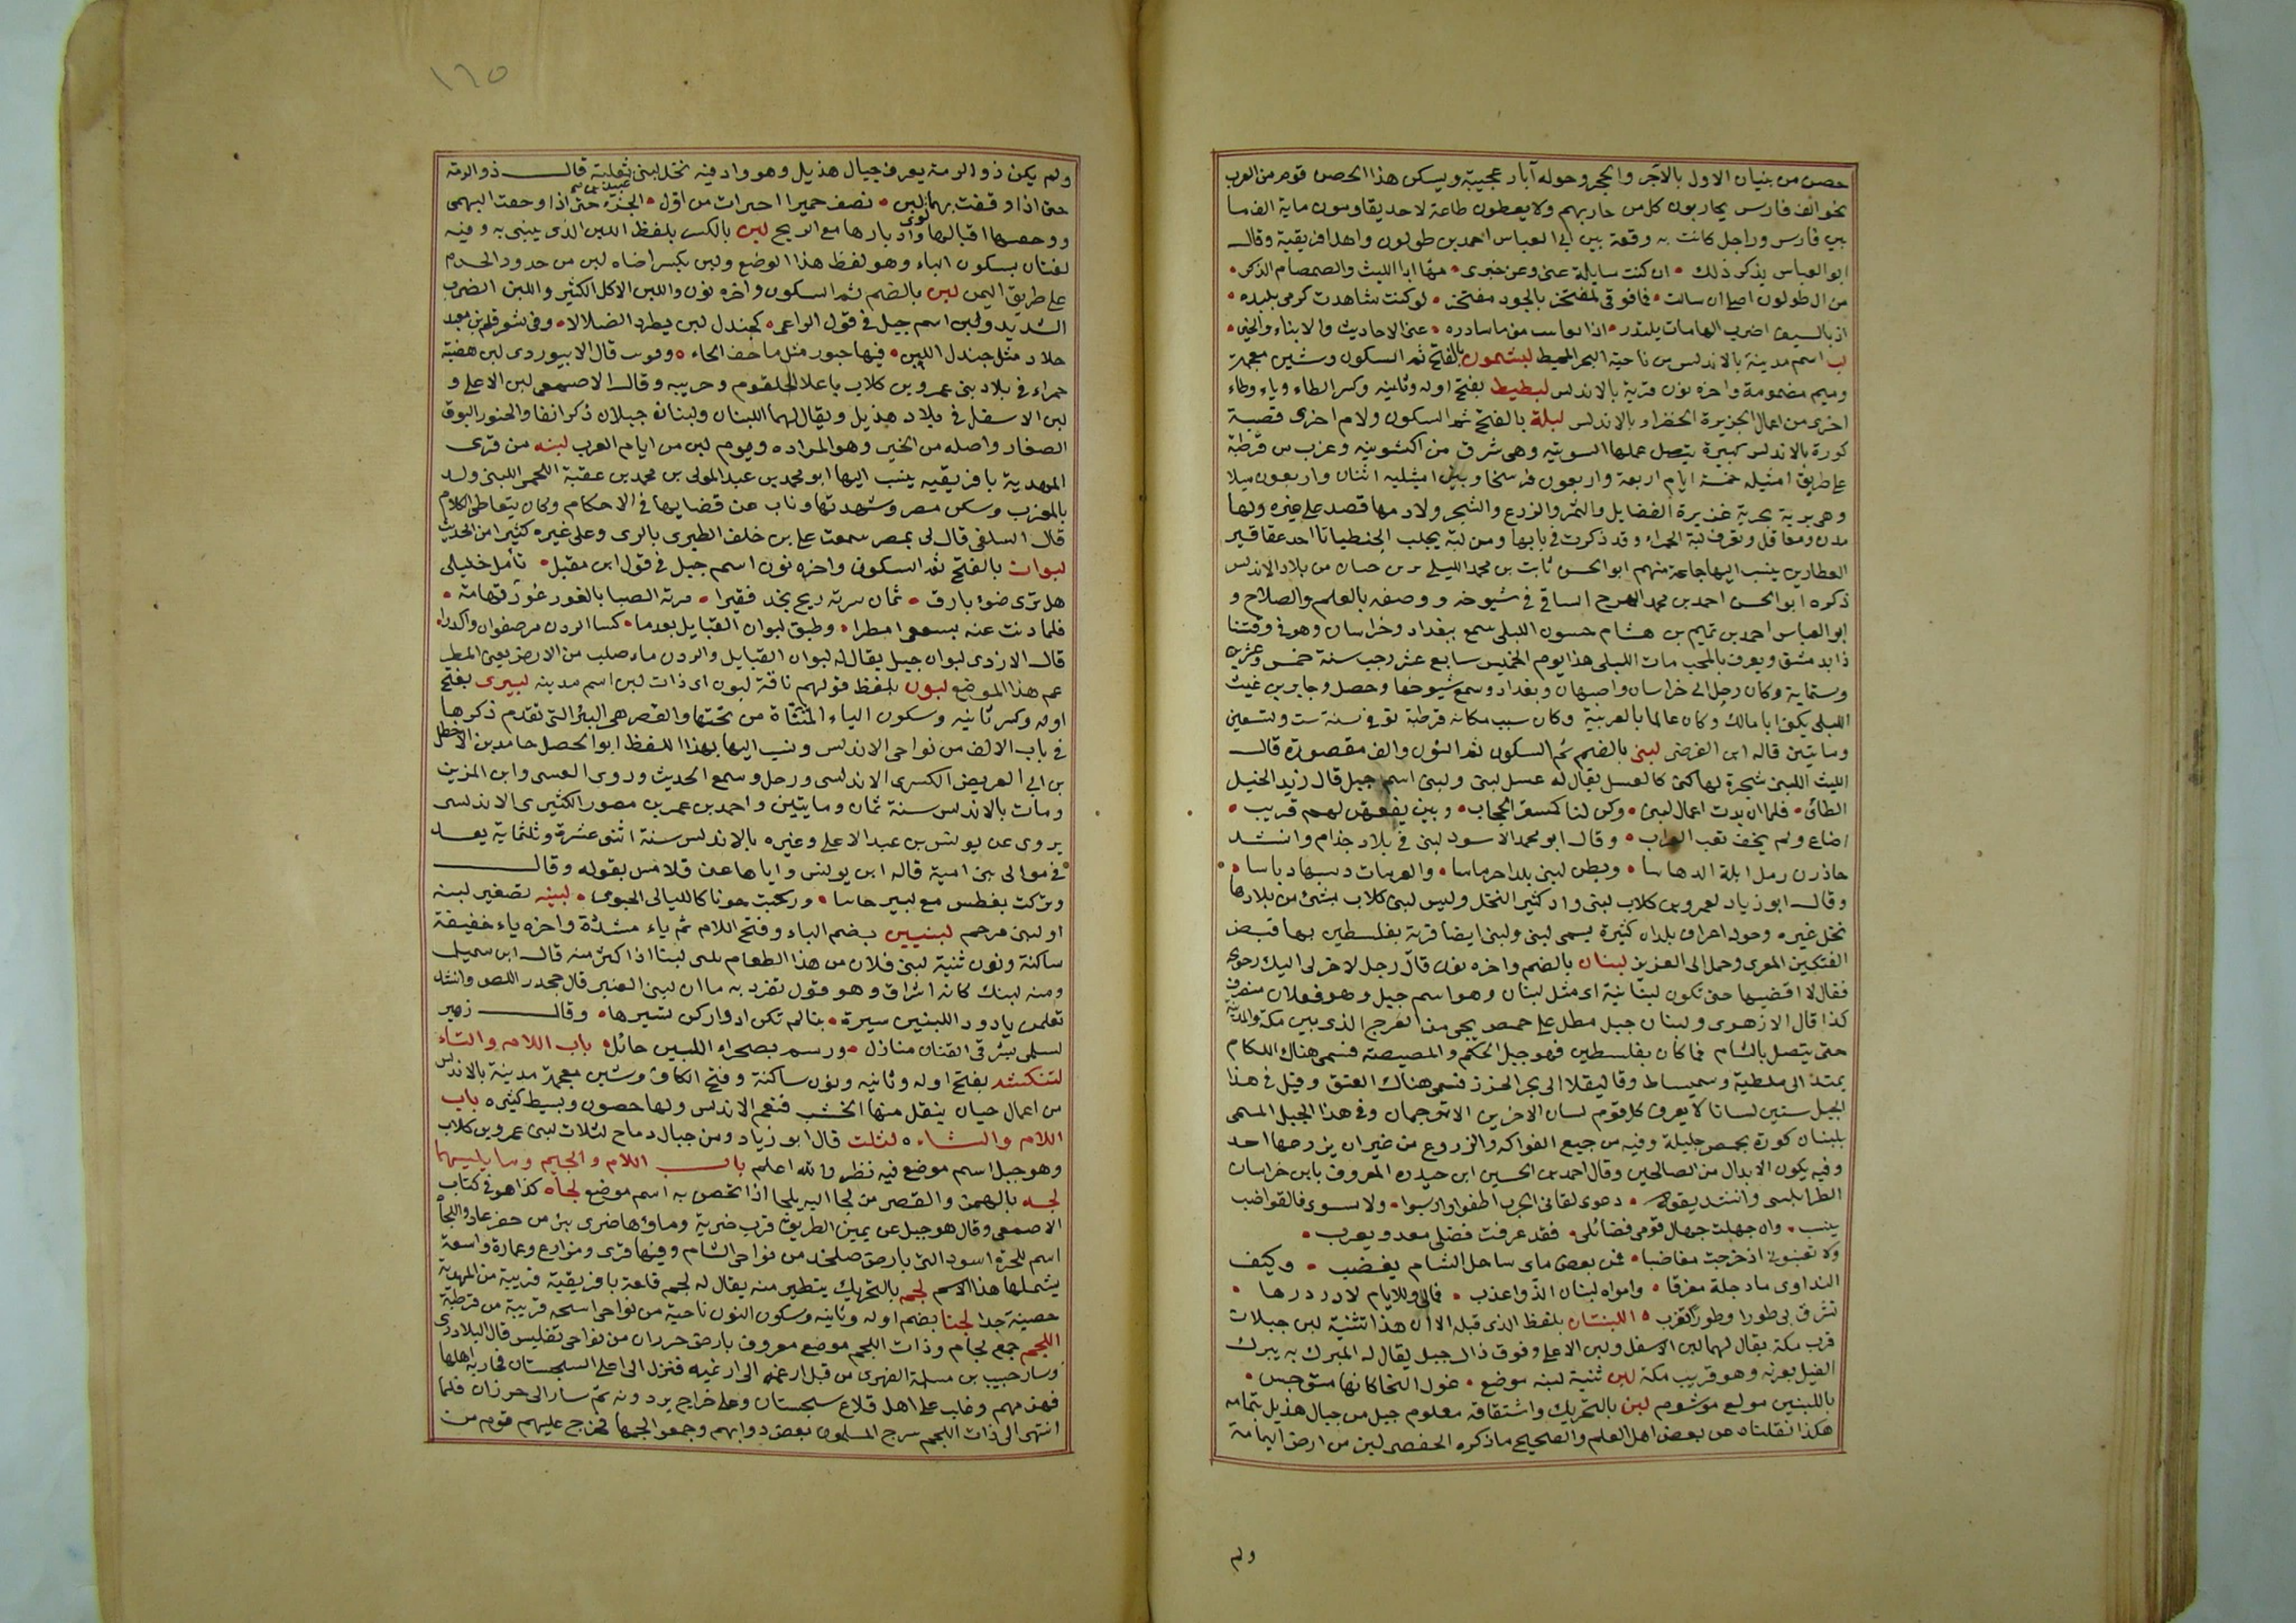 حصن من بنيان الاول بالآجر والحجر وحوله آبار عجيبة ويسكن هذا الحصن قوم من العرب
نحو الف فارس يحاربون كل من حاربهم ولا يعطون طاعة لاحد يقاومون ماية الف ما
بين فارس وراجل كانت به وقعة بين ابى العباس احمد بن طولون واهل افريقية وقال
ابو العباس يذكر ذلك • ان كنت سايلة عنى وعن خبرى • فها انا الليث والصمصام الذكر •
من ال طولون اصلى ان سالت • فما فوقى لمفتخر بالجود مفتخر • لو كنت شاهدت كرمى بلبده •
اذ بالسيف اضرب الهامات يبتدر • اذا ما سادره • عنى الاحاديث والابناء والخبر •
لب اسم مدينة بالاندلس من ناحية البحر المحيط لبشمون بالفتح ثم السكون وشين معجمة
وميم مضمومة واخره نون قرية بالاندلس لبطيط بفتح اوله وثانيه وكسر الطاء وياء وطاء
اخرى من اعمال الجزيرة الخضراء بالاندلس لبلة بالفتح ثم السكون ولام اخرى قصبة
كورة بالاندلس كبيرة يتصل عملها وهى شرق من اكشونيه وغرب من قرطبة
على طريق خمسة ايام اربعة واربعون فرسخا وبين اثنان واربعون ميلا
وهى برية بحرية غزيرة الفضايل والثمر والزرع والشجر ولادمها قصد على غيره ولها
مدن ومعاقل وتعرف لبة الحمراء وقد ذكرت فى بابها ومن لبة يجلب الجنطيانا احد عقاقير
العطارين ينسب اليها جماعة منهم ابو الحسن ثابت بن محمد الليلى من بلاد الاندلس
ذكره ابو الحسن احمد بن محمد فى شيوخه ووصفه بالعلم والصلاح و
ابو العباس احمد بن تميم بن هشام حسون اللبلى سمع ببغداد وخراسان وهو فى وقتنا
ذا بدمشق ويعرف بالمحب مات اللبلى هذا يوم الخميس سابع عشر رجب سنة خمس وعشرين
وستماية وكان رحل الى خراسان واصبهان وبغداد وسمع شيوخها وحصل وجابر بن غيث
اللبلى يكنى ابا مالك وكان عالما بالعربية وكان سبب مكانه قرطبة توفى سنة ست وتسعين
ومايتين قاله ابن الفرضى لبنى بالضم ثم السكون ثم النون والف مقصورة قال
الليث اللبنى شجرة لها لثى كالعسل يقال له عسل لبنى ولبنى اسم جبل قال زيد الخيل
الطائى • فلما ان بدت اعمال لبنى • وكن لنا كمستتر الحجاب • وبين لهم قريب •
اضاع ولم يخف نعب الغراب • وقال ابو محمد الاسود لبنى فى بلاد جذام وانشد
حاذرن رمل ايلة الدهاسا • وبطن لبنى بلدا حرماسا • والعرمات دسها دياسا •
وقال ابو زياد لعمرو بن كلاب لبنى واد كثير النخل وليس لبنى كلاب بشئ من بلادها
نخل غيره وحوله بلدان كثيرة يسمى لبنى ولبنى ايضا قرية بفلسطين بها قبض
الفتكين المعزى وحمل الى العزيز لبنان بالضم واخره نون قال رجل لاخر لى اليك
فقال لا اقضيها حتى تكون لبنانية اى مثل لبنان وهو اسم جبل وهو فعلان منصرف
كذا قال الازهرى ولبنان جبل مطل على حمص يجى من العرج الذى بين مكة والمدينة
حتى يتصل بالشام فما كان بفلسطين فهو جبل والمصيصة فسمى هناك اللكام
يمتد الى ملطية وسميساط وقاليقلا الى بحر الخزر فسمى هناك العتق وقيل فى هذا
الجبل ستين لسانا لا يعرف كل قوم لسان الاخرين الا بترجمان وفى هذا الجبل المسمى
بلبنان كورة بحمص جليلة وفيه من جميع الفواكه والزروع من غير ان يزرعها احد
وفيه يكون الابدال من الصالحين وقال احمد بن الحسين ابن حيدره المعروف بابن خراسان
الطرابلسى وانشد بقوله • دعونى لقا فى الحرب اطفوا وارسبوا • ولا فالقواضب
ينسب • وان جهلت جهال قومى فضائلى • فقد عرفت فضلى معد ويعرب •
ولا تعتبونى اذ خرجت مغاضبا • فمن بعض ما بى ساحل الشام يغضب • وكيف
التداوى ما دجلة مغرقا • وامواه لبنان الذ واعذب • فمالى وللايام لا در درها •
تشرق بى طورا وطورا تغرب • اللبنتان بلفظ الذى قبله الا ان هذا تثنية لبن جبلان
قرب مكة يقال لهما لبن الاسفل ولبن الاعلى وفوق ذاك جبل يقال له المبرك به يبرك
الفيل بعرنه وهو قريب مكة لبن تثنية لبنه موضع • عول النخا كانها متوجس •
باللبنين مولع موشوم لبن بالتحريك واشتقاقه معلوم جبل من جبال هذيل بتهامه
هكذا نقلناه عن بعض اهل العلم والصحيح ما ذكره الحفصى لبن من ارض اليمامة
ولم
١٦٥
ولم يكن ذو الرمة يعرف جبال هذيل وهو واد فيه نخل لبنى عبيد بن ثعلبة قال ذو الرمة
حتى اذا وقفت بهما لبن • نصف حميرا من اول • حتى اذا وجفت البهمى
ووحسها اقبالها وادبارها مع الريح لبن بالكسر بلفظ اللبن الذى يبنى به وفيه
لغتان بسكون الباء وهو لفظ هذا الوضع ولبن بكسر اضاه لبن من حدود الحرم
على طريق اليمن لبن بالضم ثم السكون واخره نون واللبن الاكل الكثير واللبن الضرب
الشديد ولبن اسم جبل فى قول الراعى • كجندل لبن يطرد الضلالا • وفى شعر
مثل جندل اللبن • فيها جبور مثل ما حف الحاء • قال الابيوردى لبن هضبة
حمراء فى بلاد بنى عمرو بن كلاب باعلا الحلقوم وحربيه وقال الاصمعى لبن الاعلى و
لبن الاسفل فى بلاد هذيل ويقال لهما اللبنان ولبنان جبلان ذكر انفا والحنور البوق
الصغار واصله من الخبر وهو المراده ويوم لبن من ايام العرب لبنه من قرى
المهدية بافريقيه ينسب اليها ابو محمد بن عبد المولى بن محمد بن عقبة اللخمى اللبنى ولد
بالمغرب وسكن مصر وشهد بها وناب عن قضايها فى الاحكام وكان يتعاطى الكلام
قال السلفى قال لى بمصر سمعت على بن خلف الطبرى بالرى وعلى غيره كثيرا من الحديث
لبوان بالفتح ثم السكون واخره نون اسم جبل فى قول ابن مقبل • تأمل خليلى
هل ترى ضوء بارق • ثمان سرته ريح نجد فقيرا • مرته الصبا بالغور غور تهامة •
فلما دنت عنه امطرا • وطبق لبوان القبايل بعدما • كسا الردن من صفوان واكدرا •
قال الازدى لبوان جبل يقال له لبوان القبايل والردن ما صلب من الارض يعنى المطر
عم هذا الموضع لبون بلفظ قولهم ناقة لبون اى ذات لبن اسم مدينه لبيرى بفتح
اوله وكسر ثانيه وسكون الياء المثناة من تحتها والقصر هى البيرة التى تقدم ذكرها
فى باب الالف من نواحى الاندلس وينسب اليها بهذا اللفظ ابو الحصل حامد بن الاخطل
بن ابى العريض الكسرى الاندلسى ورحل وسمع الحديث وروى العسى وابن المزين
ومات بالاندلس سنة ثمان ومايتين واحمد بن عمر بن منصور الكثيرى الاندلسى
يروى عن يونس بن عبد الاعلى وغيره بالاندلس سنة اثنى عشرة وثلثماية يعد
فى موالى بنى امية قاله ابن يونس واياها عنى قلامس بقوله وقال
وتركت بفطس مع لبير حاسا • وركبت حونا كالليالى الجونى • لبينه تصغير لبنه
او لبنى مرخم لبنيين بضم الباء وفتح اللام ثم ياء مشددة واخره ياء خفيفة
ساكنة ونون تثنية لبنى فلان من هذا الطعام يلبن لبنا اذا اكثر منه قال ابن سميل
ومنه لبنك كانه اشراق وهو قول تفرد به ما ان لبنى العنبر قال جحدر اللص وانشد
تعلمن يا دود اللبنين سيرة • بنا لم تكن ادوار كن تسيرها • وقال زهير
لسلمى بشرقى القنان منازل • ورسم بصحراء اللبين حائل • باب اللام والتاء
لتنكشد بفتح اوله وثانيه ونون ساكنة وفتح الكاف وشين معجمة مدينة بالاندلس
من اعمال جيان ينقل منها الخشب فتعم الاندلس ولها حصون وبسيط كثيره باب
اللام والثاء • لثلث قال ابو زياد ومن جبال دماح لثلاث لبنى عمرو بن كلاب
وهو جبل اسم موضع فيه نظر والله اعلم باب اللام والجيم وما يليهما
لجــه بالهمز والقصر من لجا اليه يلجا اذا تحصن به اسم موضع لجاه كذا هو فى كتاب
الاصمعى وقال هو جبل عن يمين الطريق قرب ضرية وماؤها ضرى بئر من حفر عاد واللجأ
اسم للحرة السود التى بارض صلخد من نواحى الشام وفيها قرى ومزارع وعمارة واسعة
يشملها هذا الاسم لجم بالتحريك يتطير منه يقال له لجم قلعة بافريقية قريبة من المهدية
حصينة جدا لجنا بضم اوله وثانيه وسكون النون ناحية من نواحى اسجه قريبة من قرطبة
اللجم جمع لجام وذات اللجم موضع معروف بارض جرزان من نواحى تفليس قال البلاذرى
وسار حبيب بن مسلمة الفهرى من قبل ارمنيه الى ارمنيه فنزل الى اعلى السيسجان فحاربه اهلها
فهزمهم وغلب على اهل قلاع سيسجان وعلى خراج يردونه ثم سار الى جرزان فلما
انتهى الى ذات اللجم سرح المسلمون بعض دوابهم وجمعوا لجمها فخرج عليهم قوم من